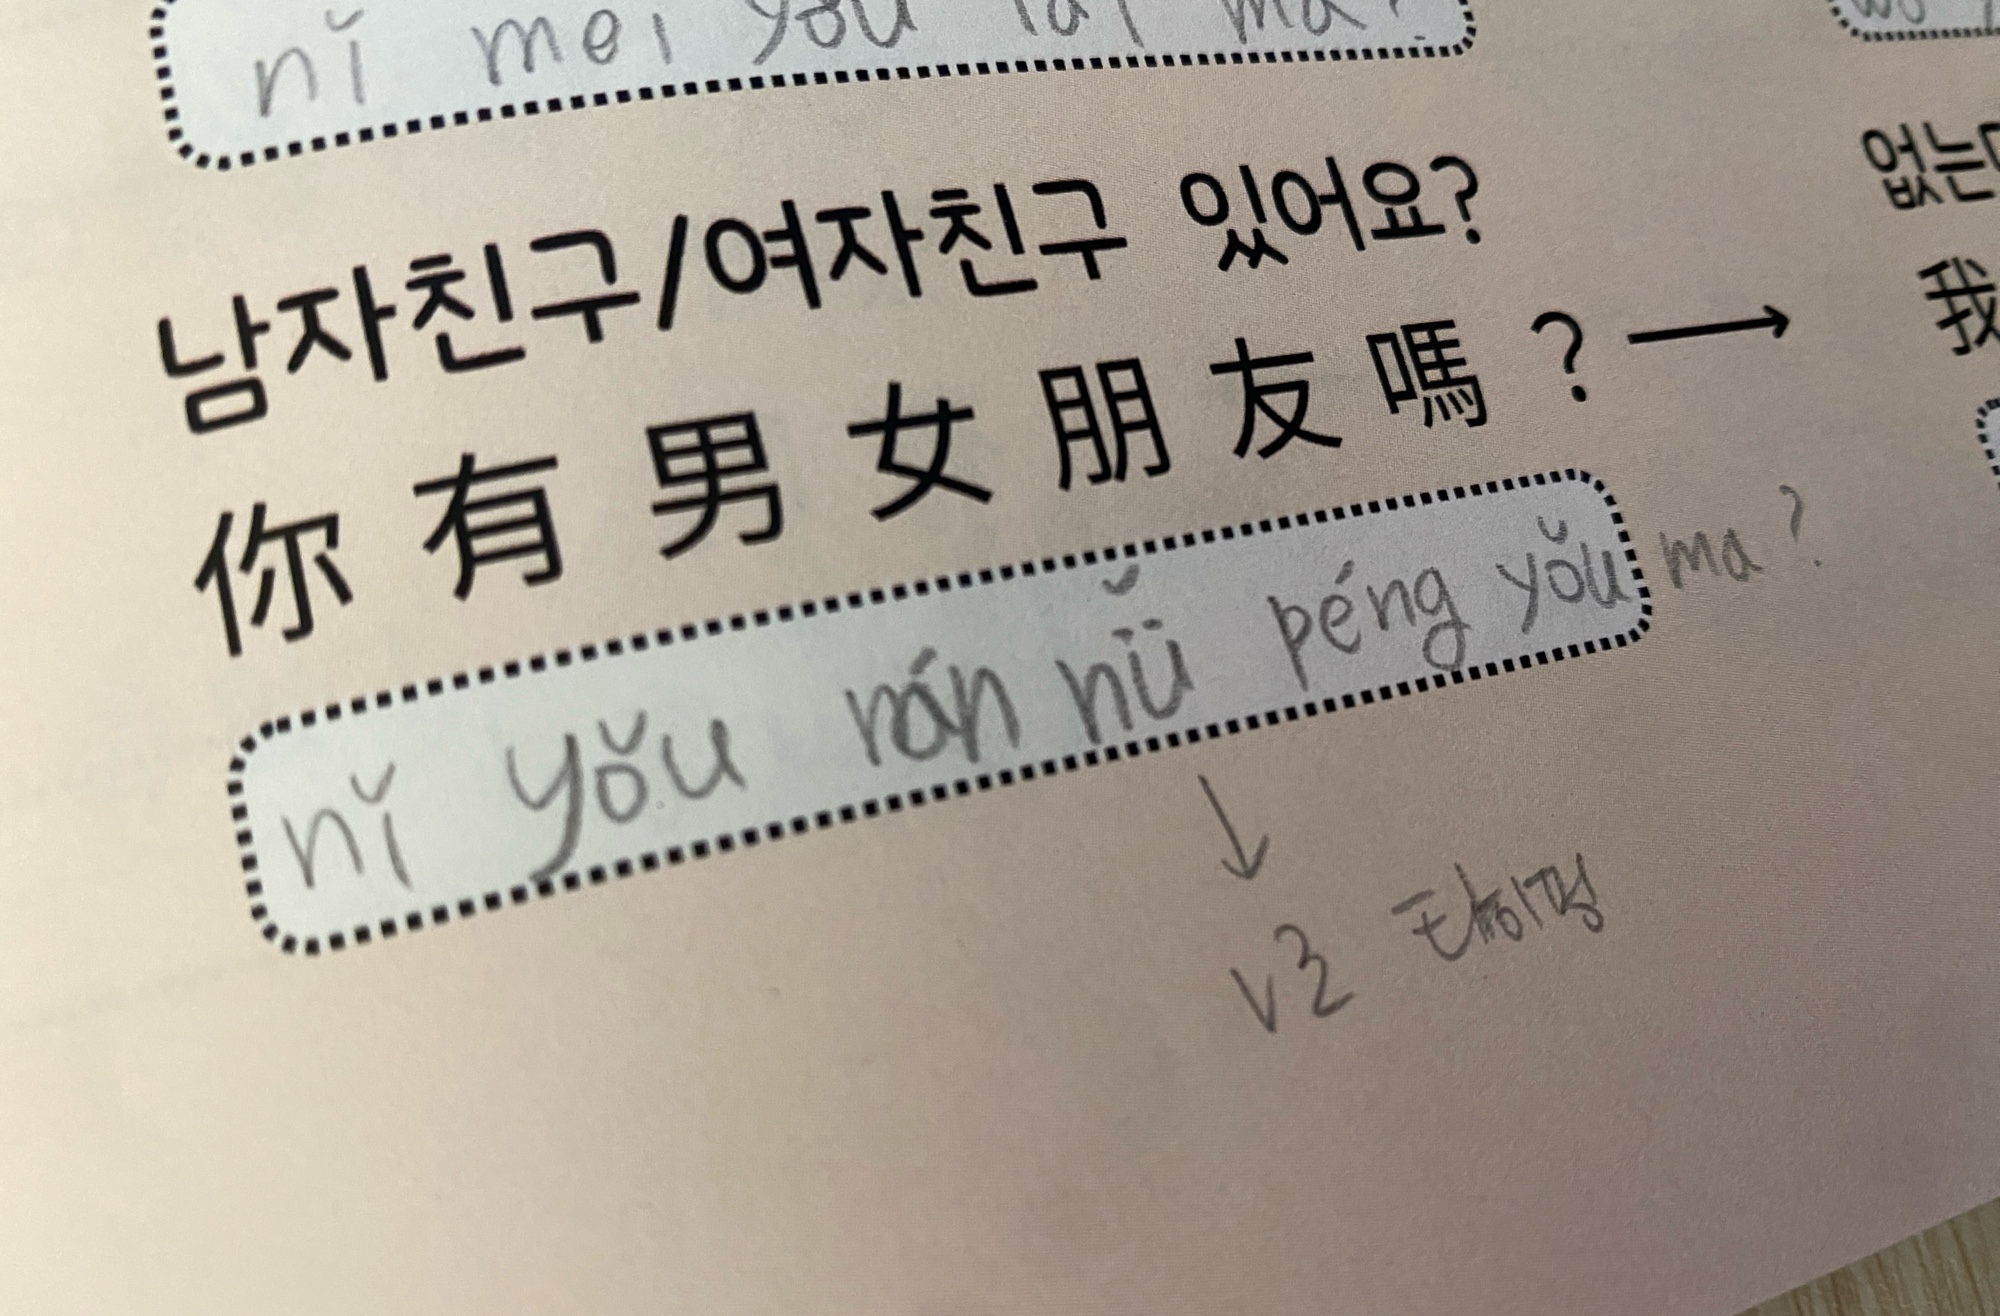 nǐ mei yǒu tai ma?
wǒ
남자친구/여자친구 있어요?
없는데
你 有 男 女 朋 友 嗎 ? →
我
nǐ yǒu nán nǚ péng yǒu ma ?
↓
v3 타이핑